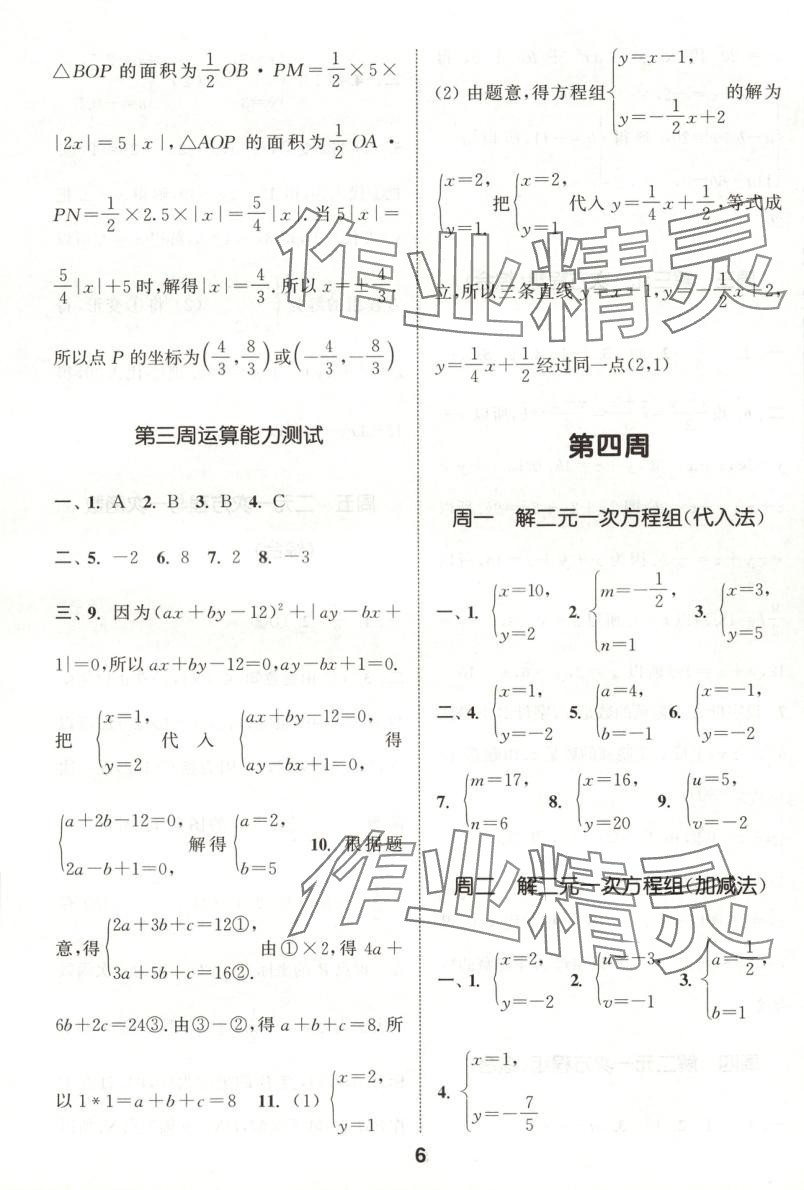 △BOP 的面积为 1/2 OB·PM=1/2×5×
|2x|=5|x|,△AOP 的面积为 1/2 OA·
PN=1/2×2.5×|x|=5/4|x|.当5|x|=
5/4|x|+5时,解得|x|=4/3.所以x=±4/3.
所以点 P 的坐标为(4/3,8/3)或(-4/3,-8/3)
第三周运算能力测试
一、1. A 2. B 3. B 4. C
二、5. -2 6. 8 7. 2 8. -3
三、9. 因为(ax+by-12)²+|ay-bx+
1|=0,所以ax+by-12=0,ay-bx+1=0.
把 {x=1, y=2 代入 {ax+by-12=0, ay-bx+1=0, 得
{a+2b-12=0, 2a-b+1=0, 解得 {a=2, b=5 10. 根据题
意,得 {2a+3b+c=12①, 3a+5b+c=16②. 由①×2,得 4a+
6b+2c=24③.由③-②,得 a+b+c=8.所
以 1*1=a+b+c=8 11. (1) {x=2, y=1
(2) 由题意,得方程组 {y=x-1, y=-1/2x+2 的解为
{x=2, y=1. 把 {x=2, y=1 代入 y=1/4x+1/2,等式成
立,所以三条直线 y=x-1,y=-1/2x+2,
y=1/4x+1/2 经过同一点(2,1)
第四周
周一 解二元一次方程组(代入法)
一、1. {x=10, y=2 2. {m=-1/2, n=1 3. {x=3, y=5
二、4. {x=1, y=-2 5. {a=4, b=-1 6. {x=-1, y=-2
7. {m=17, n=6 8. {x=16, y=20 9. {u=5, v=-2
周二 解二元一次方程组(加减法)
一、1. {x=2, y=-2 2. {u=-3, v=-1 3. {a=1/2, b=1
4. {x=1, y=-7/5
6
作业精灵
作业精灵